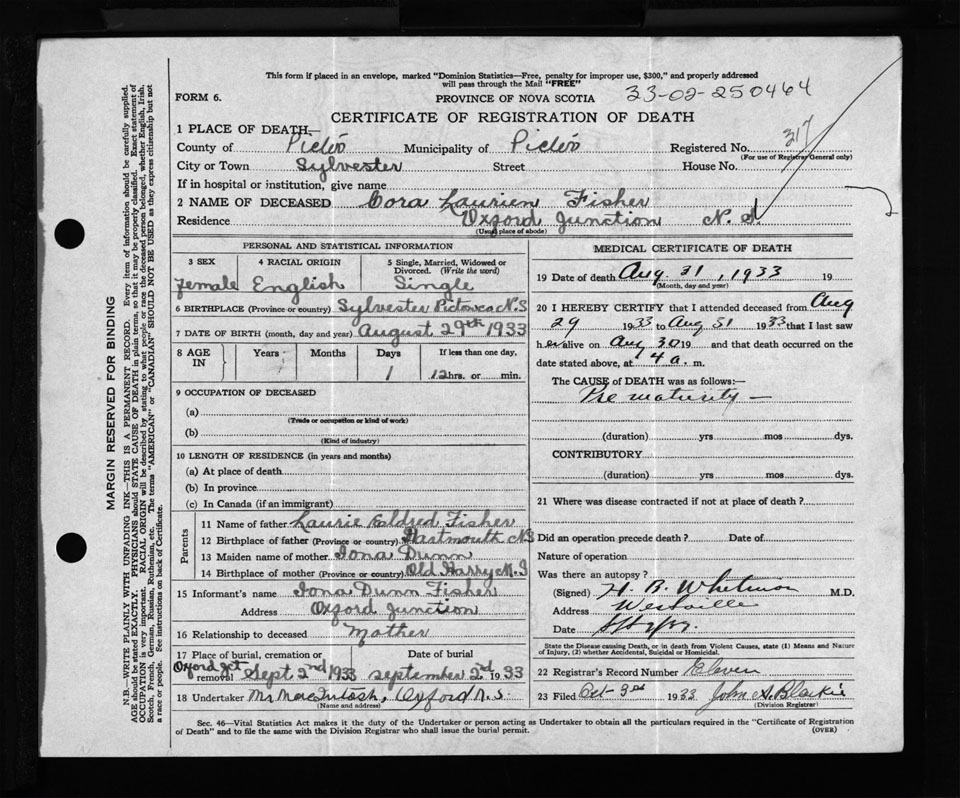 This form if placed in an envelope, marked "Dominion Statistics—Free, penalty for improper use, $300," and properly addressed
will pass through the Mail "FREE"
FORM 6.
PROVINCE OF NOVA SCOTIA
33-02-250464
CERTIFICATE OF REGISTRATION OF DEATH
1 PLACE OF DEATH—
County of Pictou Municipality of Pictou Registered No. 317
(For use of Registrar General only)
City or Town Sylvester Street House No.
If in hospital or institution, give name
2 NAME OF DECEASED Cora Laurien Fisher
Residence Oxford Junction N. S.
(Usual place of abode)
PERSONAL AND STATISTICAL INFORMATION
3 SEX 4 RACIAL ORIGIN 5 Single, Married, Widowed or
Divorced. (Write the word)
Female English Single
6 BIRTHPLACE (Province or country) Sylvester Pictou Co N.S
7 DATE OF BIRTH (month, day and year) August 29th 1933
8 AGE IN Years Months Days If less than one day,
1 12 hrs. or min.
9 OCCUPATION OF DECEASED
(a)
(Trade or occupation or kind of work)
(b)
(Kind of industry)
10 LENGTH OF RESIDENCE (in years and months)
(a) At place of death
(b) In province
(c) In Canada (if an immigrant)
Parents
11 Name of father Laurie Eldred Fisher
12 Birthplace of father (Province or country) Dartmouth NS
13 Maiden name of mother Iona Dunn
14 Birthplace of mother (Province or country) Old Harry M.I
15 Informant's name Iona Dunn Fisher
Address Oxford Junction
16 Relationship to deceased Mother
17 Place of burial, cremation or removal Date of burial
Oxford Jct Sept 2nd 1933 September 2nd 1933
18 Undertaker Mr MacIntosh, Oxford N.S.
(Name and address)
MEDICAL CERTIFICATE OF DEATH
19 Date of death Aug 31, 1933 19
(Month, day and year)
20 I HEREBY CERTIFY that I attended deceased from Aug
29 1933 to Aug 31 1933 that I last saw
her alive on Aug 30 19 and that death occurred on the
date stated above, at 4 a. m.
The CAUSE of DEATH was as follows:—
Pre maturity —
(duration) yrs mos dys.
CONTRIBUTORY
(duration) yrs mos dys.
21 Where was disease contracted if not at place of death?
Did an operation precede death? Date of
Nature of operation
Was there an autopsy?
(Signed) H. B. Whitman M.D.
Address Westville
Date
State the Disease causing Death, or in death from Violent Causes, state (1) Means and Nature
of Injury, (2) whether Accidental, Suicidal or Homicidal.
22 Registrar's Record Number Eleven
23 Filed Oct 3rd 1933 John A. Blackie
(Division Registrar)
Sec. 46—Vital Statistics Act makes it the duty of the Undertaker or person acting as Undertaker to obtain all the particulars required in the "Certificate of Registration
of Death" and to file the same with the Division Registrar who shall issue the burial permit.
(OVER)
MARGIN RESERVED FOR BINDING
N.B.—WRITE PLAINLY WITH UNFADING INK—THIS IS A PERMANENT RECORD. Every item of information should be carefully supplied.
AGE should be stated EXACTLY. PHYSICIANS should STATE CAUSE OF DEATH in plain terms, so that it may be properly classified. Exact statement of
OCCUPATION is very important. RACIAL ORIGIN will be described by stating to what people or race the deceased person belonged, whether English, Irish,
Scotch, French, German, Russian, Ruthenian, etc. The terms "AMERICAN" or "CANADIAN" SHOULD NOT BE USED as they express citizenship but not
a race or people. See instructions on back of Certificate.